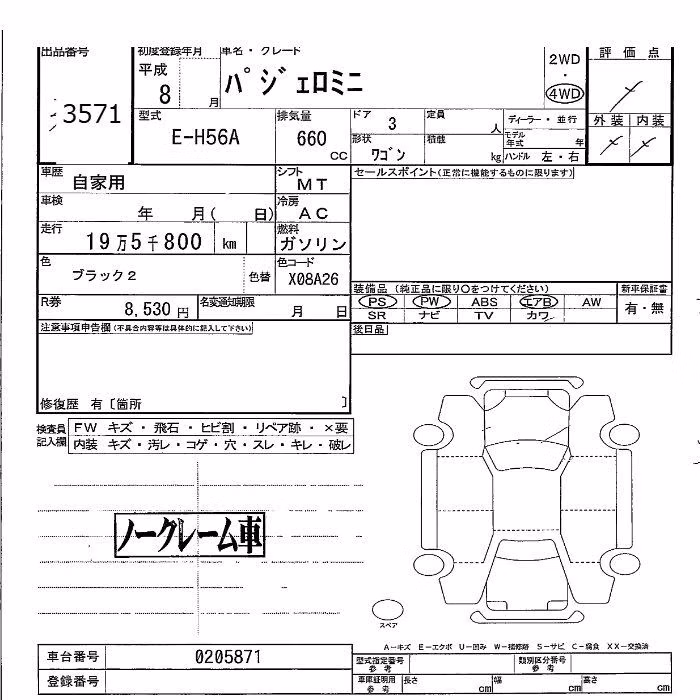 出品番号 初度登録年月 車名・グレード 2WD 評価点
平成 パジェロミニ ・
8 月 4WD
3571 型式 排気量 ドア 3 定員 人 ディーラー・並行 外装 内装
E-H56A 660 cc 形状 ワゴン 積載 kg モデル年式 年
ハンドル 左・右
車歴 自家用 シフト MT セールスポイント(正常に機能するものに限ります)
車検 年 月( 日) 冷房 AC
走行 19万5千800 km 燃料 ガソリン
色 ブラック2 色替 色コード X08A26
装備品 (純正品に限り○をつけてください) 新車保証書
R券 8,530円 名変通知期限 月 日 PS PW ABS エアB AW 有・無
SR ナビ TV カワ
注意事項申告欄(不具合内容等は具体的に記入して下さい) 後日品
修復歴 有〔箇所 〕
検査員 FW キズ・飛石・ヒビ割・リペア跡・×要
記入欄 内装 キズ・汚レ・コゲ・穴・スレ・キレ・破レ
ノークレーム車
スペア
A-キズ E-エクボ U-凹み W-補修跡 S-サビ C-腐食 XX-交換済
車台番号 0205871 型式指定番号 参考 類別区分番号 参考
登録番号 車庫証明用 参考 長さ cm 幅 cm 高さ cm